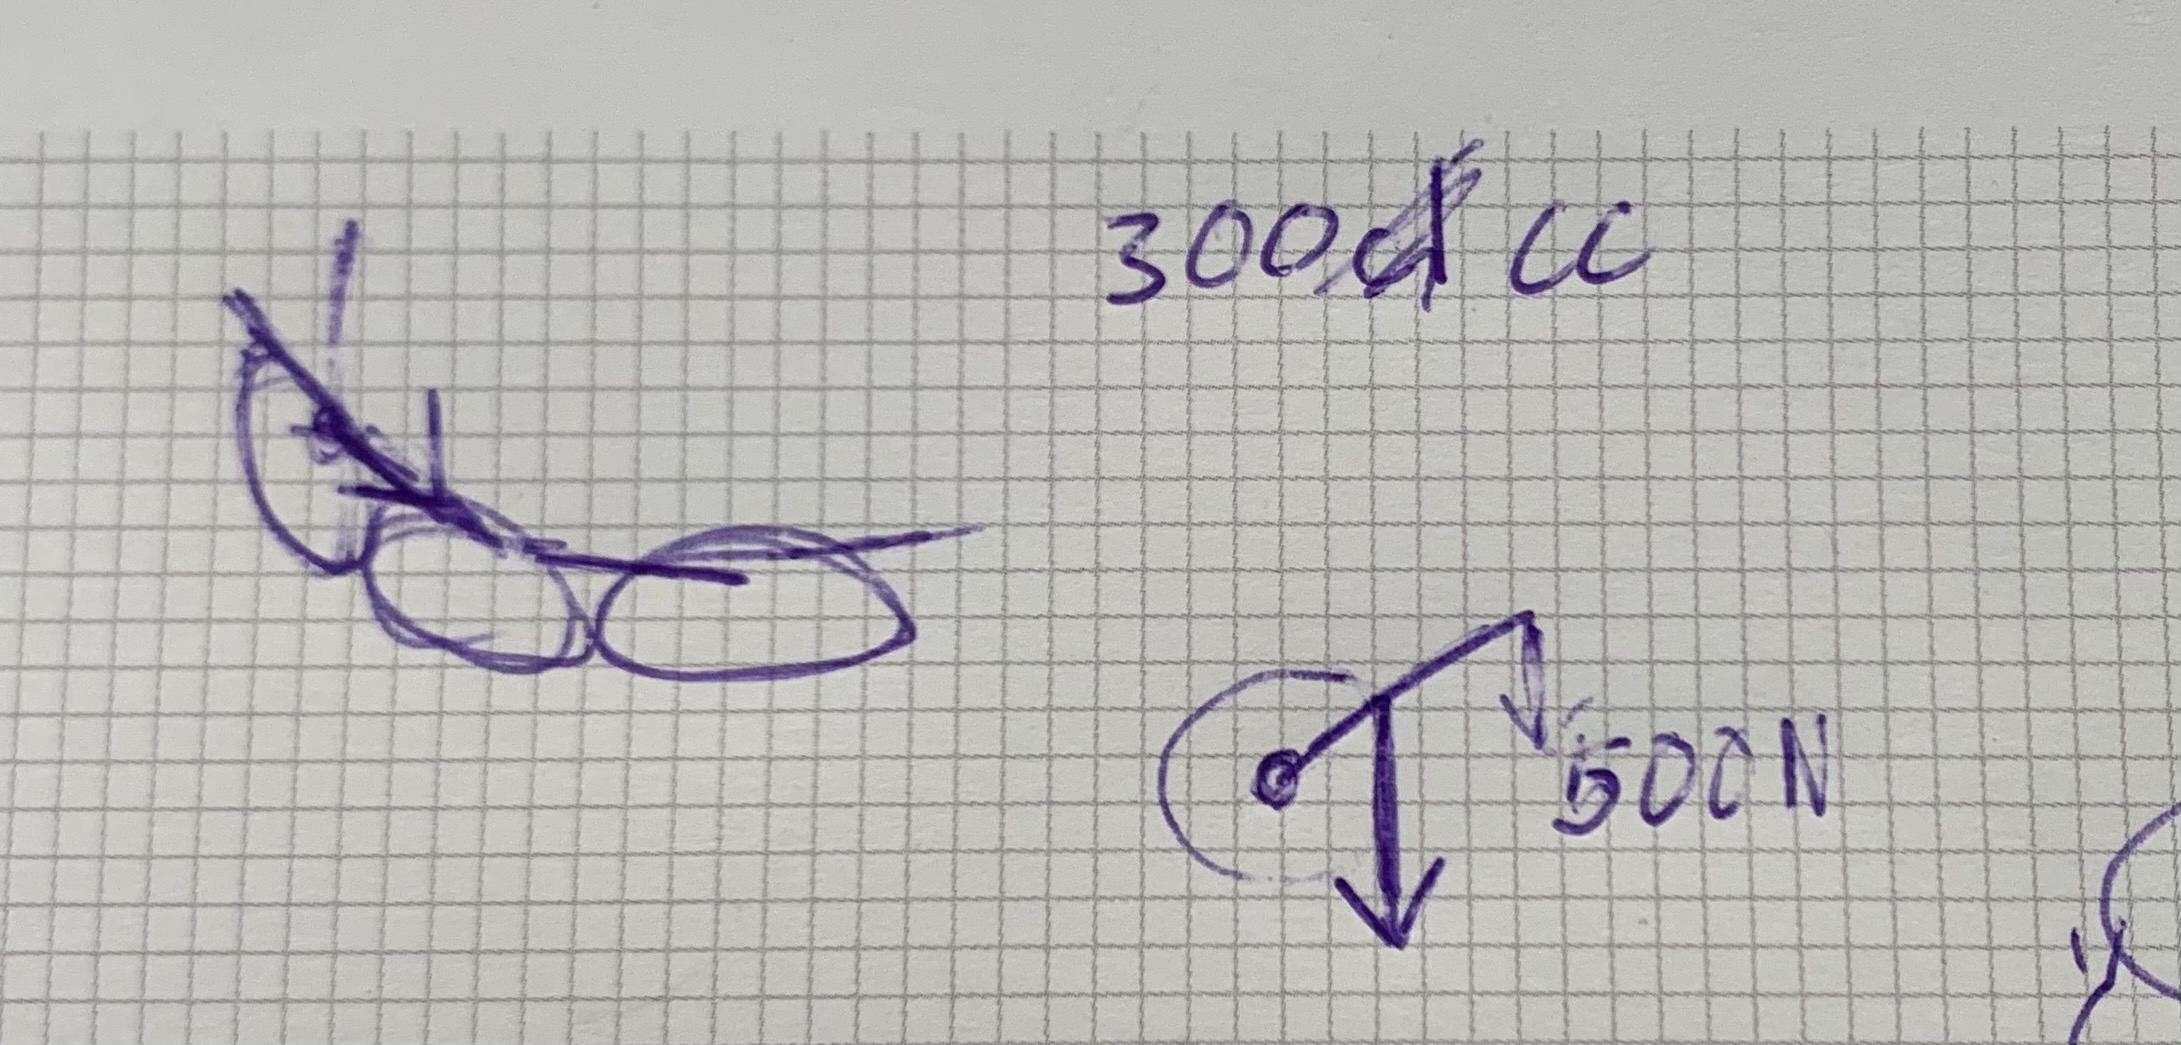 300 cc
500N